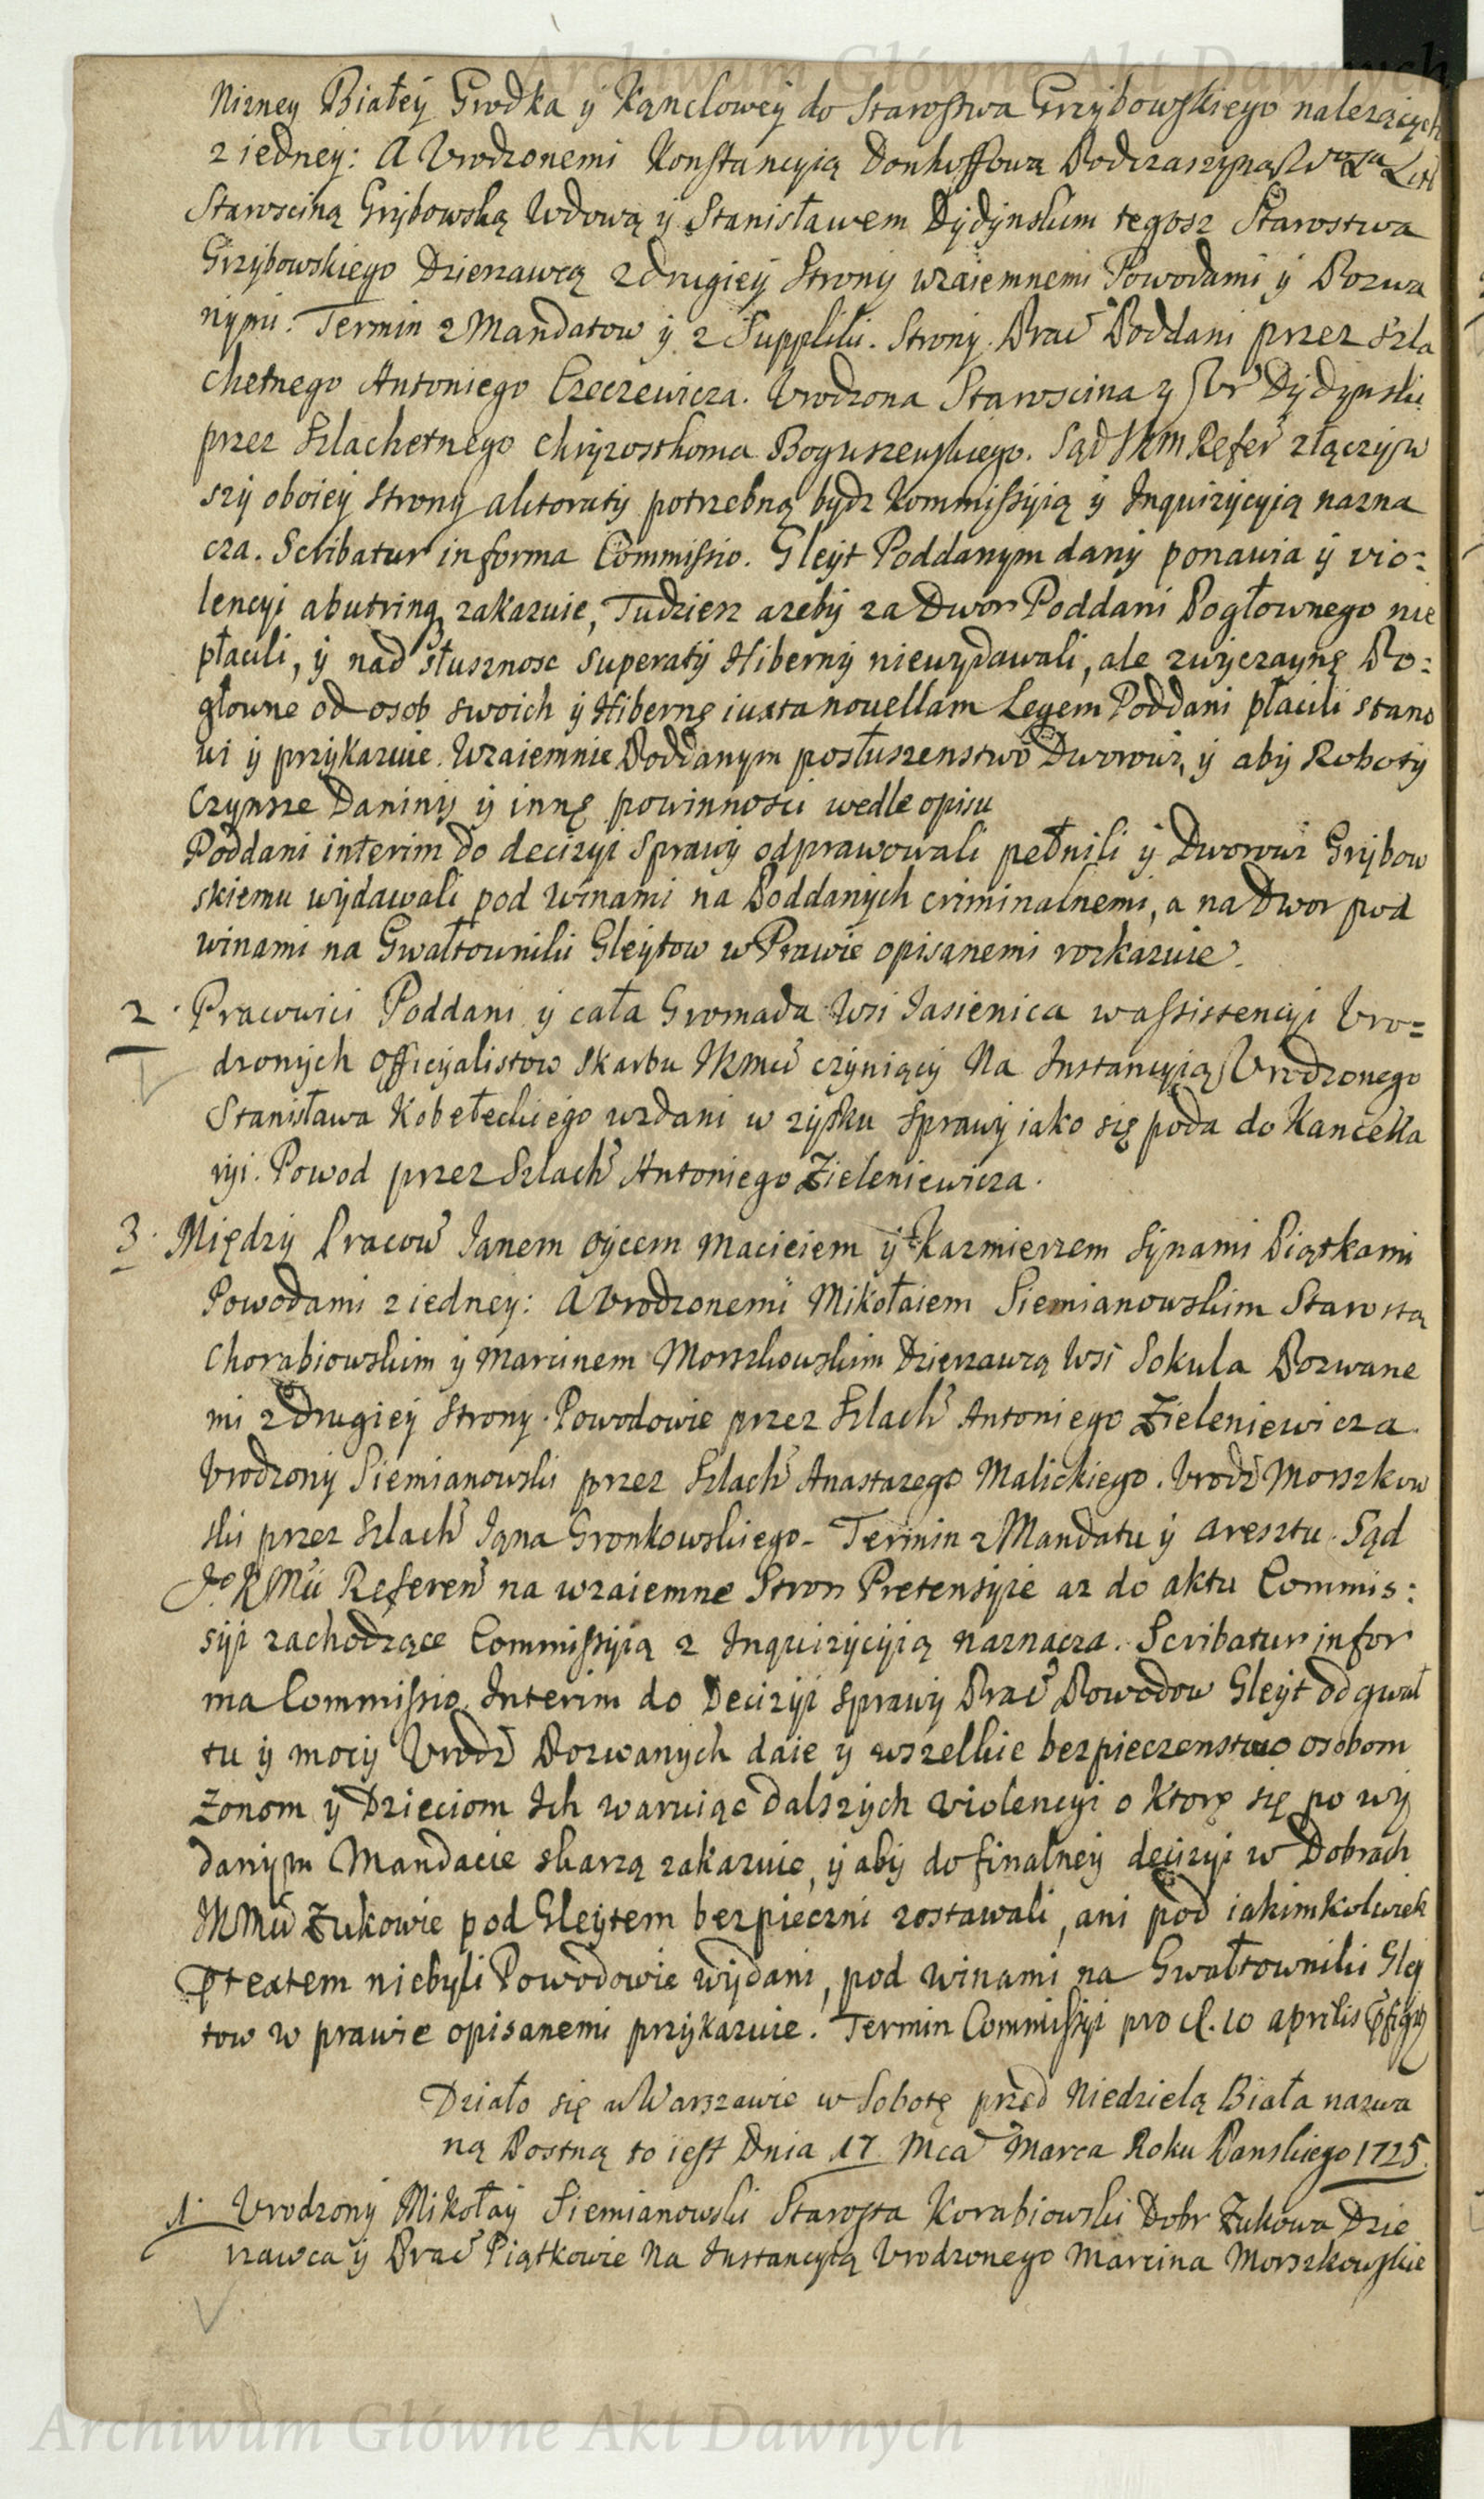 Archiwum Główne Akt Dawnych
Nizney Białey Grodka y Kąnclowey do Starostwa Grzybowskiego nalezących
z iedney: A Vrodzonemi Konstancyią Donhoffową Podczaszyną
Starosciną Grybowską Wdową y Stanisławem Dydynskim tegosz Starostwa
Grzybowskiego Dzierzawcą z drugiey Strony wzaiemnemi Powodami y Pozwa
nymi. Termin z Mandatow y z Suppliki. Strony Prac Poddani przez Szla
chetnego Antoniego Czeczewicza. Vrodzona Staroscina y Vr Dydynski
przez Szlachetnego Chryzosthoma Boguszewskiego. Sąd JKM Refer złączyw
szy oboiey Strony aktoraty potrzebną bydz Kommissyią y Inquizycyią nazna
cza. Scribatur in forma Commissio. Gleyt Poddanym dany ponawia y vio:
lencyi abutring zakazuie, Tudziesz azeby za Dwor Poddani Pogłownego nie
płacili, y nad słusznosc superaty Hiberny niewydawali, ale zwyczaynę Po:
głowne od osob swoich y Hibernę iuxta novellam Legem Poddani płacili stano
wi y przykazuie. Wzaiemnie Poddanym posłuszenstwo Dworowi, y aby Roboty
Czynsze Daniny y innę powinnosci wedle opisu
Poddani interim do decizyi Sprawy odprawowali pełnili y Dworowi Grybow
skiemu wydawali pod winami na Poddanych criminalnemi, a na Dwor pod
winami na Gwałtowniki Gleytow w Prawie opisanemi rozkazuie.
2. Pracowici Poddani y cała Gromada Wsi Iasienica w assistencyi Vro=
dzonych Officyalistow Skarbu JKMci czyniący Na Instancyią Vrodzonego
Stanisława Kobełeckiego wzdani w zysku Sprawy iako się poda do Kancella
ryi. Powod przez Szlach Antoniego Zieleniewicza.
3. Między Pracow Ianem oycem Macieiem y Kazmierzem Synami Piątkami
Powodami z iedney: A Vrodzonemi Mikołaiem Siemianowskim Starostą
Chorabiowskim y Marcinem Morszkowskim Dzierzawcą Wsi Sokula Pozwane
mi z drugiey Strony. Powodowie przez Szlach Antoniego Zieleniewicza
Vrodzony Siemianowski przez Szlach Anastazego Malickiego. Vrodz Morszkow
ski przez Szlach Iana Gronkowskiego. Termin z Mandatu y aresztu. Sąd
Jo KMci Referen na wzaiemne Stron Pretensyie az do aktu Commis:
syi zachodzące Commissyią z Inquizycyią naznacza. Scribatur in for
ma Commissio. Interim do Decizyi Sprawy Prac Powodow Gleyt od gwał
tu y mocy Vrodz Pozwanych daie y wszelkie bezpieczenstwo osobom
Zonom y Dzieciom Ich waruiąc dalszych violencyi o ktorę się po wy
danym Mandacie skarzą zakazuie, y aby do finalney decizyi w Dobrach
JKMci Zukowie pod Gleytem bezpieczni zostawali, ani pod iakimkolwiek
ptextem niebyli Powodowie wydani, pod winami na Gwałtowniki Gley
tow w prawie opisanemi przykazuie. Termin Commissyi pro d. 10 aprilis
Działo się w Warszawie w Sobotę przed Niedzielą Biała nazwa
ną Postną to iest Dnia 17 Mca Marca Roku Panskiego 1725.
1. Vrodzony Mikołay Siemianowski Starosta Korabiowski Dobr Zukowa Dzie
rzawca y Prac Piątkowie Na Instancyią Vrodzonego Marcina Morszkowskie
Archiwum Główne Akt Dawnych